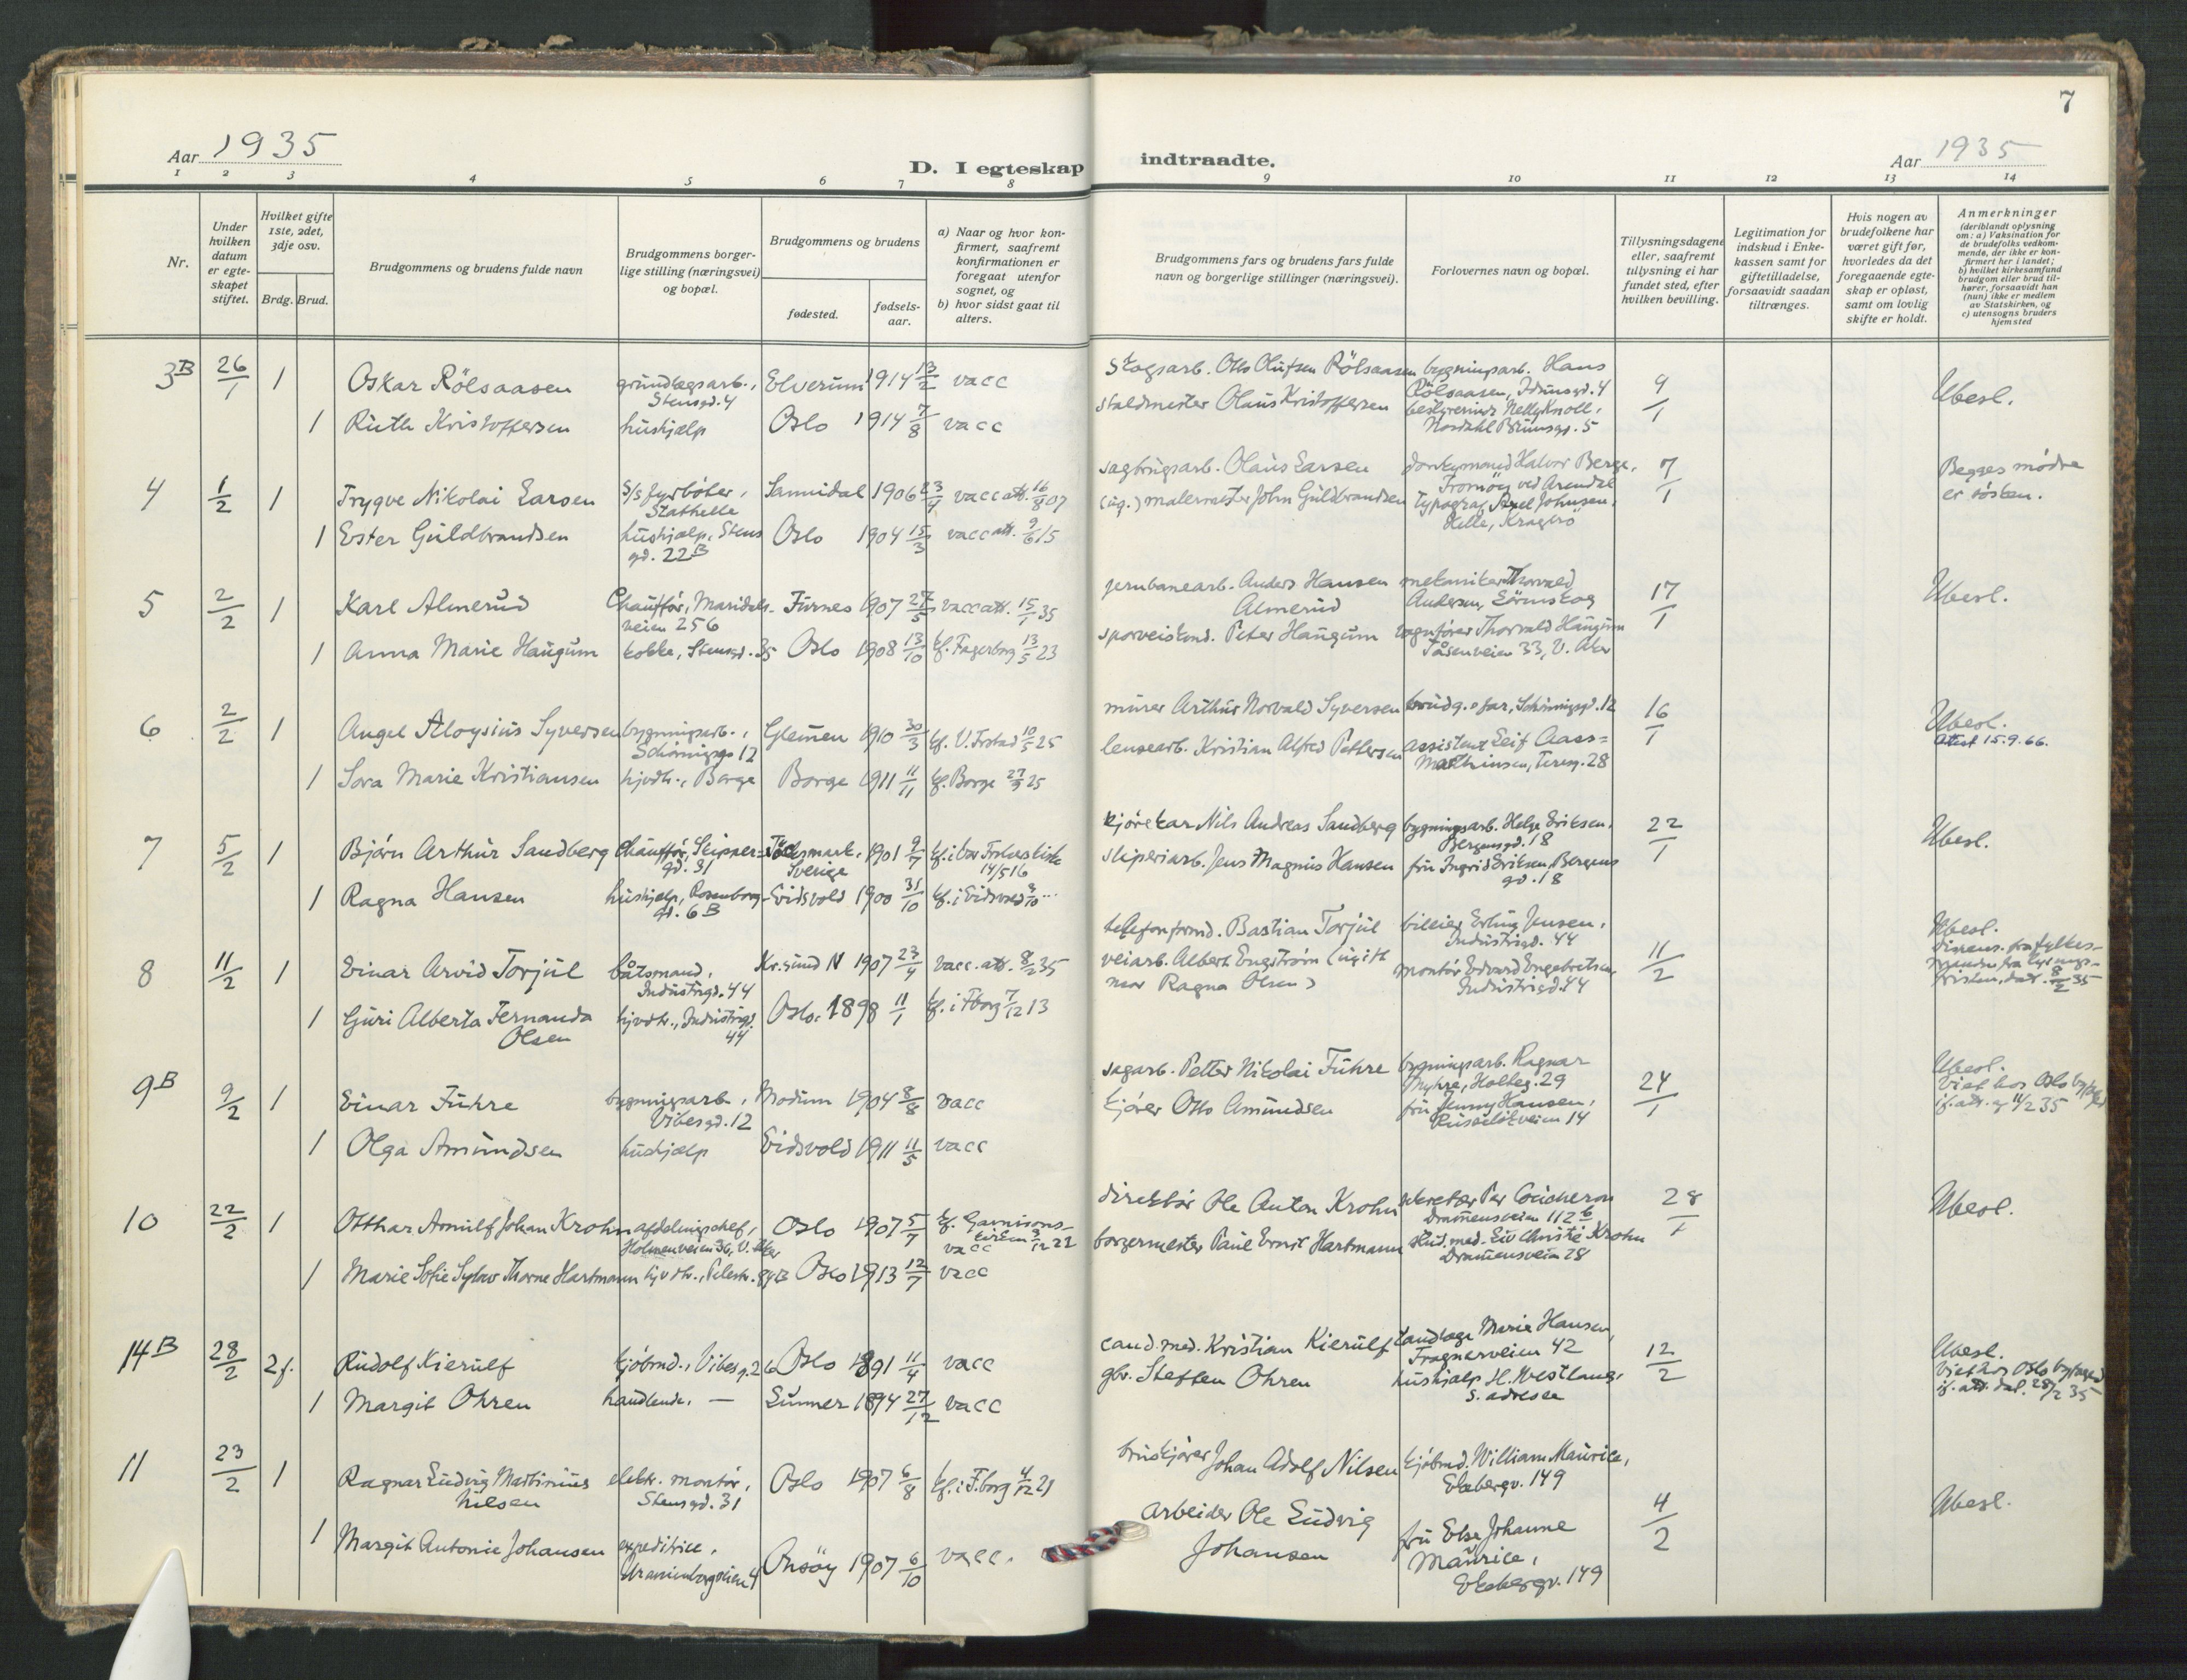 7
Aar 1935
D. Iegteskap indtraadte.
Aar 1935
1 2 3 4 5 6 7 8 9 10 11 12 13 14
Nr.
Under hvilken datum er egte-skapet stiftet.
Hvilket gifte 1ste, 2det, 3dje osv.
Brdg. Brud.
Brudgommens og brudens fulde navn
Brudgommens borger-lige stilling (næringsvei) og bopæl.
Brudgommens og brudens
fødested.
fødsels-aar.
a) Naar og hvor kon-firmert, saafremt konfirmationen er foregaat utenfor sognet, og
b) hvor sidst gaat til alters.
Brudgommens fars og brudens fars fulde navn og borgerlige stillinger (næringsvei).
Forlovernes navn og bopæl.
Tillysningsdagene eller, saafremt tillysning ei har fundet sted, efter hvilken bevilling.
Legitimation for indskud i Enke-kassen samt for giftetilladelse, forsaavidt saadan tiltrænges.
Hvis nogen av brudefolkene har været gift før, hvorledes da det foregaaende egte-skap er opløst, samt om lovlig skifte er holdt.
Anmerkninger
(deriblandt oplysning om: a) Vaksination for de brudefolks vedkom-mende, der ikke er kon-firmert her i landet;
b) hvilket kirkesamfund brudgom eller brud til-hører, forsaavidt han (hun) ikke er medlem av Statskirken, og
c) utensogns bruders hjemsted
3B 26/1 1 Oskar Rölsaasen grundlagsarb., Stensgd. 4 Elverum 1914 13/2 vacc
Skogsarb. Otto Olufsen Rölsaasen bygningsarb. Hans Rölsaasen, Idunsgd. 4 9/1 Ubesl.
1 Ruth Kristoffersen hushjælp Oslo 1914 7/8 vacc
staldmester Olaus Kristoffersen bestyrerinde Nelly Knoll, Nordahl Brunsgd. 5
4 1/2 1 Trygve Nikolai Larsen S/s fyrbøter, Stathelle Sannidal 1906 23/4 vacc att. 16/8 07
sagbrugsarb. Olaus Larsen donkymand Halvor Berge, Tromøy ved Arendal 7/1 Begges mødre er søsken.
1 Ester Guldbrandsen hushjælp, Stens gd. 22B Oslo 1904 15/3 vacc att. 9/6 15
(ug.) malermester John Guldbrandsen typograf Axel Johnsen, Helle, Kragerø
5 2/2 1 Karl Almerud Chauffør, Maridals-veien 256 Furnes 1907 27/5 vacc att. 15/1 35
jernbanearb. Anders Hansen Almerud mekaniker Thorvald Andersen, Lörenskog 17/1 Ubesl.
1 Anna Marie Haugum kokke, Stensgd. 35 Oslo 1908 13/10 kf. Fagerborg 13/5 23
sporveiskond. Peter Haugum vognfører Thorvald Haugum Tåsenveien 33, V. Aker
6 2/2 1 Angel Aloysius Syversen bygningsarb., Schöningsgd 12 Glemmen 1910 30/3 kf. V. Frstad 10/5 25
murer Arthur Norvald Syversen brudg.s far, Schöningsgd. 12 16/1 Ubesl.
Attest 15.9.66.
1 Sora Marie Kristiansen hjvdh., Borge Borge 1911 11/11 kf. Borge 27/9 25
lensearb. Kristian Alfred Pettersen assistent Leif Aass= Mathinsen, Teresg. 28
7 5/2 1 Bjørn Arthur Sandberg Chauffør, Skipper=gd. 31 Töcksmark, Sverige 1901 9/7 kf. i Vor Frelsers kirke 14/5 16
kjørekar Nils Andreas Sandberg bygningsarb. Helge Eriksen, Bergensgd. 18 22/1 Ubesl.
1 Ragna Hansen hushjælp, Rosenborg-gt. 6B Eidsvold 1900 31/10 kf. i Eidsvold
sliperiarb. Jens Magnus Hansen fru Ingrid Eriksen, Bergens gd. 18
8 11/2 1 Einar Arvid Torjul båtsmand, Industrigd. 44 Kr.sund N 1907 23/4 vacc. att. 8/2 35
telefonformd. Bastian Torjul bileier Erling Jensen, Industrigd. 44 11/2 Ubesl. Dispens. fra fylkes-manden fra lysnings-fristen, dat. 8/2 35
1 Guri Alberta Fernanda Olsen hjvdh., Industrigd. 44 Oslo. 1898 11/1 kf. i Fborg 7/12 13
veiarb. Albert Engström (ugift mor Ragna Olsen) montør Edvard Engebretsen, Industrigd. 44
9B 9/2 1 Einar Fuhre bygningsarb., Vibesgd. 12 Modum 1904 8/8 vacc
sagarb. Petter Nikolai Fuhre bygningsarb. Ragnar Myhre, Holteg. 29 24/1 Ubesl. Viet hos Oslo byfoged if. att. av 11/2 35
1 Olga Amundsen hushjælp Eidsvold 1911 11/5 vacc
kjører Otto Amundsen fru Jenny Hansen, Ruseløkveien 14
10 22/2 1 Otthar Arnulf Johan Krohn afdelingschef, Holmenveien 36, V. Aker Oslo 1907 5/7 kf. Garnisons-kirken 3/12 22 vacc
direktør Ole Anton Krohn sekretær Per Coucheron Drammensveien 112 b 28/1 Ubesl.
1 Marie Sofie Sylow Thorne Hartmann hjvdh., Pilestr. 89B Oslo 1913 12/7 vacc
borgermester Paul Ernst Hartmann stud. med. Liv Christie Krohn Drammensveien 78
14B 28/2 2f. Rudolf Kierulf kjøbmd., Vibesg. 26 Oslo 1891 11/4 vacc
cand. med. Kristian Kierulf tandlæge Marie Hansen, Frognerveien 42 12/2 Ubesl. Viet hos Oslo byfoged if. att. dat. 28/2 35
1 Margit Ohren handlende, — Lunner 1894 27/12 vacc
gbr. Steffen Ohren hushjælp H. Westlang, s. adresse
11 23/2 1 Ragnar Ludvig Martinius Nilsen elektr. montør, Stensgd. 31 Oslo 1907 6/8 kf. i F.borg 4/12 21
bruskjører Johan Adolf Nilsen kjøbmd. William Maurice, Ekebergv. 149 4/2 Ubesl.
1 Margit Antonie Johansen expeditrice, Uranienborgveien 4 Onsøy 1907 6/10 vacc.
arbeider Ole Ludvig Johansen fru Else Johanne Maurice, Ekebergv. 149